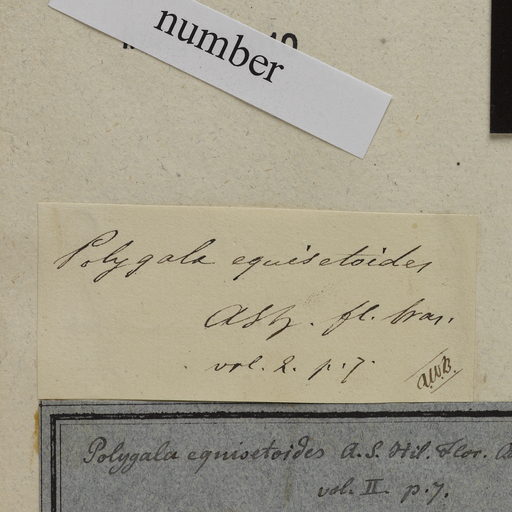 number
Polygala equisetoides
ASth. fl. bras.
vol. 2. p. 7.
A.W.B.
Polygala equisetoides A. S. Hil. Flor.
vol. II. p. 7.